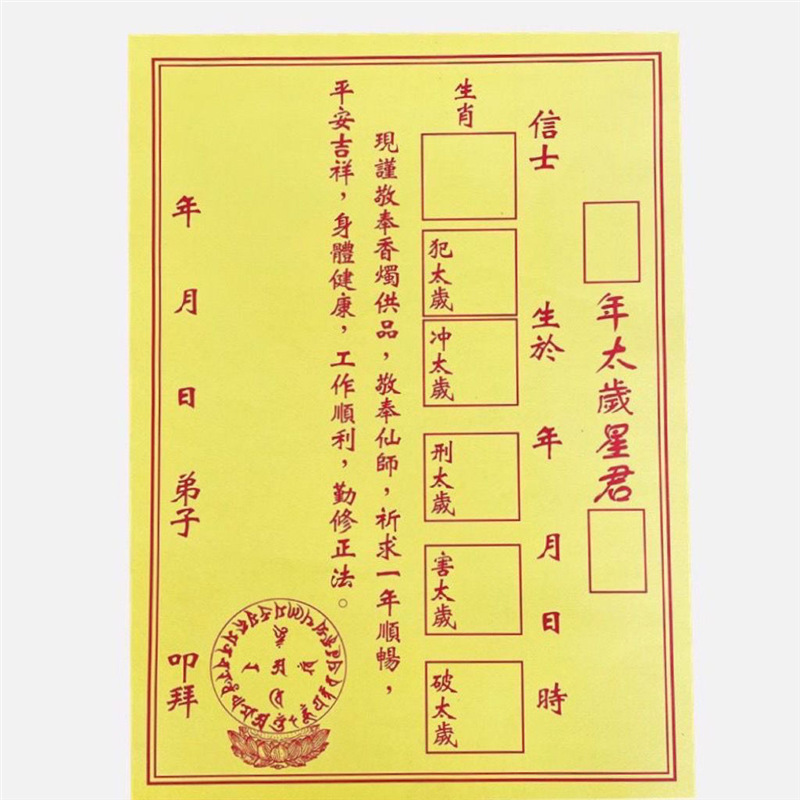 年太歲星君
信士 生於 年 月 日 時
生肖
犯太歲
冲太歲
刑太歲
害太歲
破太歲
現謹敬奉香燭供品，敬奉仙師，祈求一年順暢，
平安吉祥，身體健康，工作順利，勤修正法。
年 月 日 弟子 叩拜